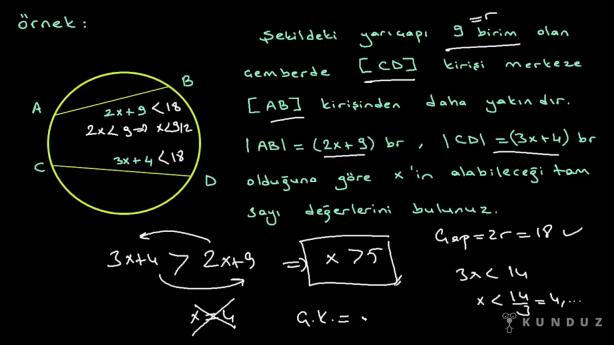 Örnek :
Şekildeki yarıçapı 9 birim olan
=r
çemberde [CD] kirişi merkeze
[AB] kirişinden daha yakındır.
|AB| = (2x+9) br , |CD| = (3x+4) br
olduğuna göre x'in alabileceği tam
sayı değerlerini bulunuz.
A
B
2x+9 < 18
2x < 9 ⇒ x < 9/2
3x+4 < 18
C
D
3x+4 > 2x+9 ⇒ x > 5
x = 4
Ç.K. = .
Çap = 2r = 18 ✓
3x < 14
x < 14/3 = 4,...
KUNDUZ